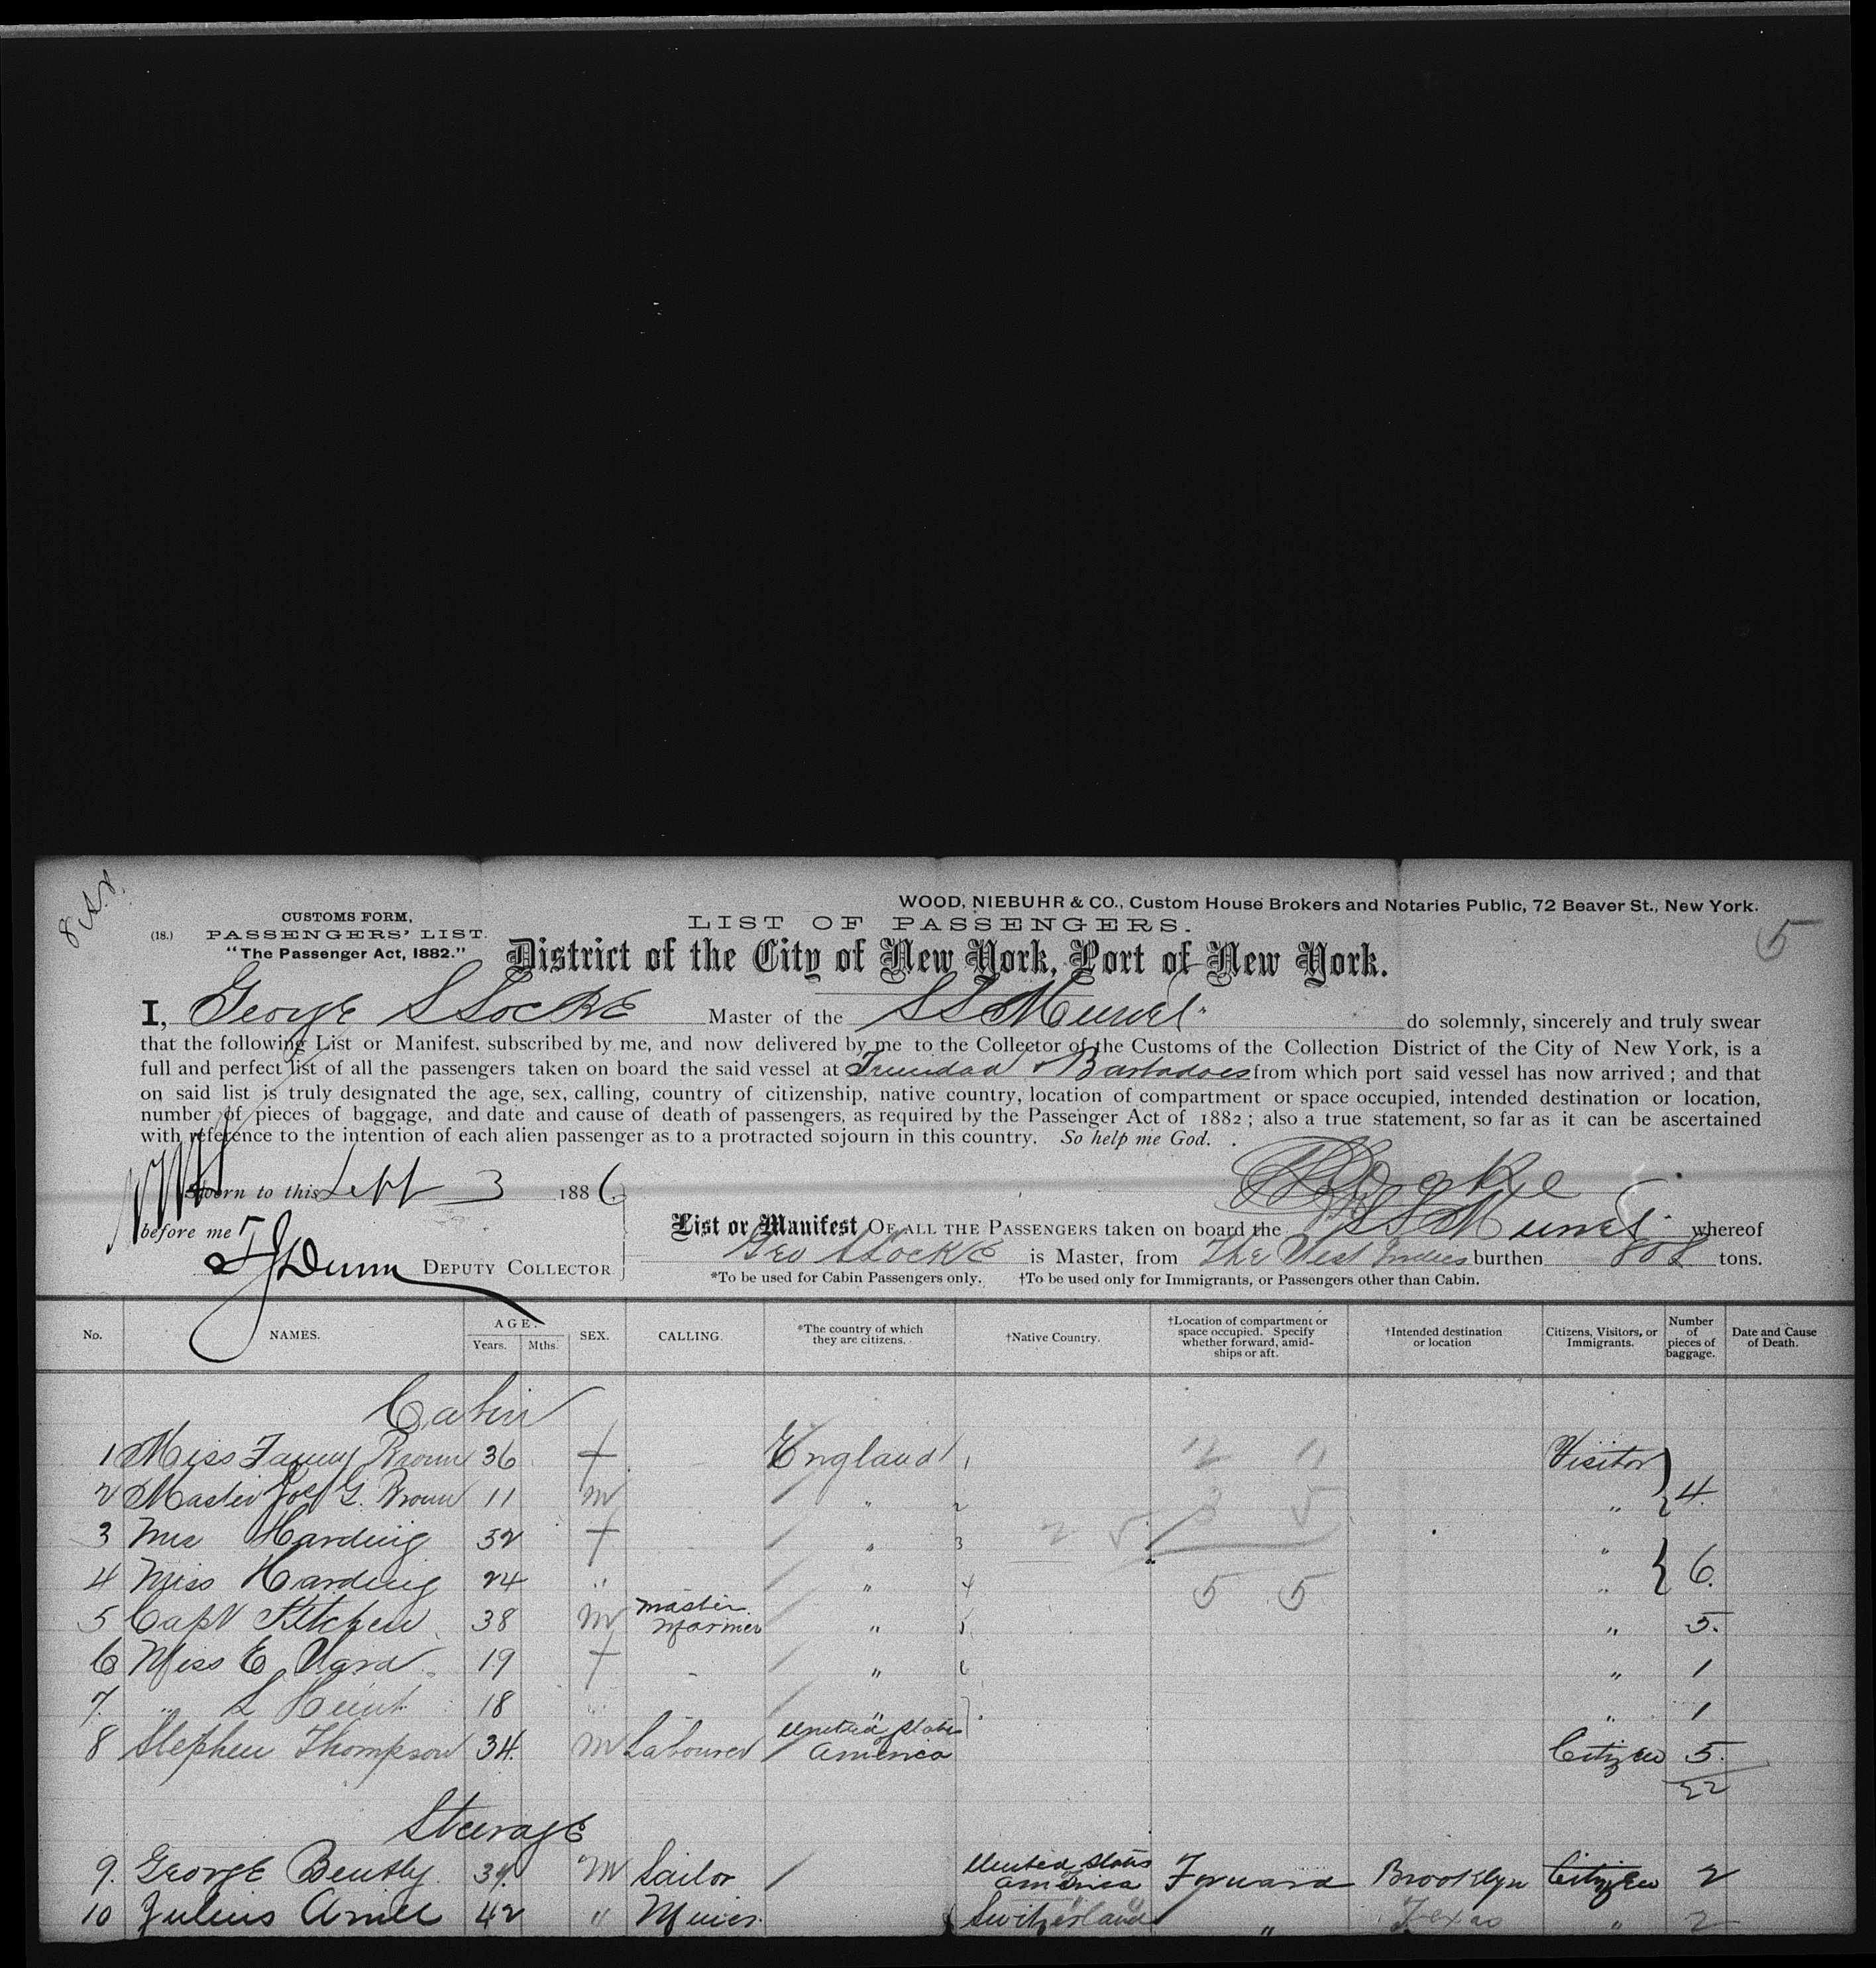 8 Apr.
WOOD, NIEBUHR & CO., Custom House Brokers and Notaries Public, 72 Beaver St., New York.
CUSTOMS FORM,
LIST OF PASSENGERS.
(18.) PASSENGERS' LIST.
5
"The Passenger Act, 1882."
District of the City of New York, Port of New York.
I, George S Locke Master of the SS Muriel do solemnly, sincerely and truly swear
that the following List or Manifest, subscribed by me, and now delivered by me to the Collector of the Customs of the Collection District of the City of New York, is a
full and perfect list of all the passengers taken on board the said vessel at Trinidad & Barbadoes from which port said vessel has now arrived; and that
on said list is truly designated the age, sex, calling, country of citizenship, native country, location of compartment or space occupied, intended destination or location,
number of pieces of baggage, and date and cause of death of passengers, as required by the Passenger Act of 1882; also a true statement, so far as it can be ascertained
with reference to the intention of each alien passenger as to a protracted sojourn in this country. So help me God.
Sworn to this Sept 3 1886
before me
List or Manifest OF ALL THE PASSENGERS taken on board the SS Muriel whereof
Dunn DEPUTY COLLECTOR
Geo S Locke is Master, from The West Indies burthen 808 tons.
*To be used for Cabin Passengers only. †To be used only for Immigrants, or Passengers other than Cabin.
No. NAMES. AGE. Years. Mths. SEX. CALLING. *The country of which they are citizens. †Native Country. †Location of compartment or space occupied. Specify whether forward, amid-ships or aft. †Intended destination or location Citizens, Visitors, or Immigrants. Number of pieces of baggage. Date and Cause of Death.
Cabin
1 Miss Fanny Brown 36 f England 1 Visitor
2 Master Jos G. Brown 11 m " 2 " 4
3 Mrs Harding 52 f " 3 "
4 Miss Harding 24 " " 4 " 6
5 Capt Kitchen 38 m Master Mariner " 5 " 5
6 Miss E Ward 19 f " 6 " 1
7 " L Hunt 18 " " 7 " 1
8 Stephen Thompson 34 m Labourer United States of America Citizen 5
22
Steerage
9. George Bently 39 m Sailor United States America Forward Brooklyn Citizen 2
10 Julius 42 " Miner Switzerland " Texas " 2